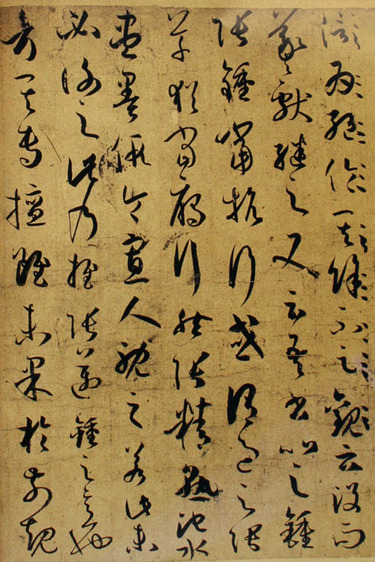 信為絕倫其餘不足觀云沒而
羲獻繼之又云吾書比之鍾
張鍾當抗行或謂過之張
草猶當鴈行然張精熟池水
盡墨假令寡人耽之若此未
必謝之此乃推張邁鍾之意也
考其專擅雖未果於前規